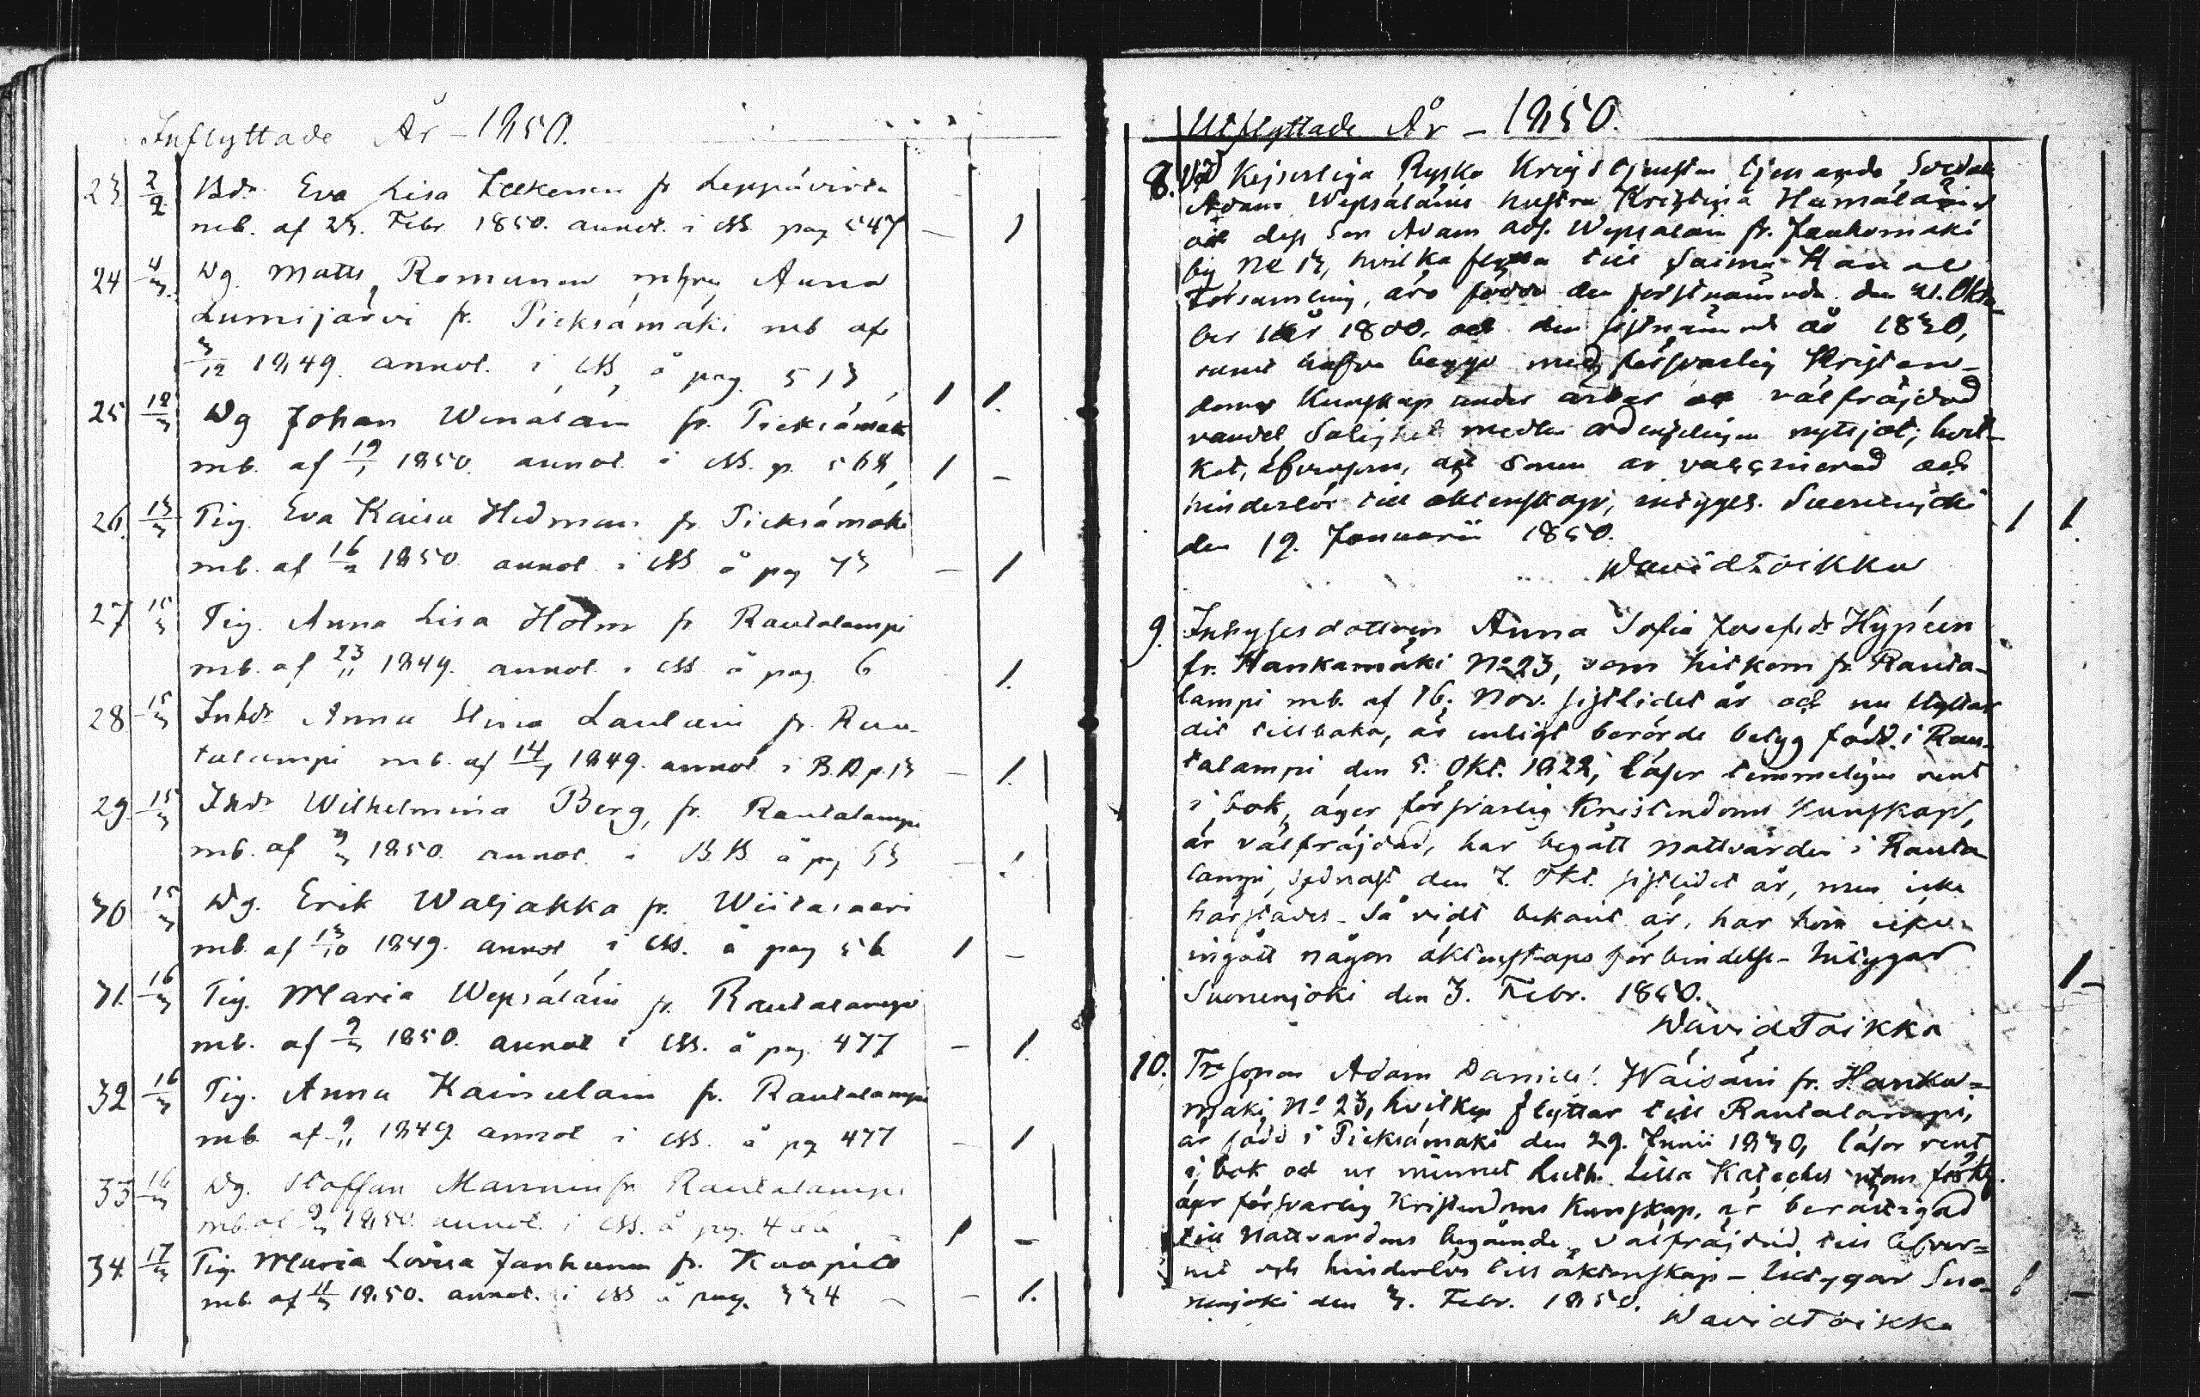 Inflyttade År - 1850.
23 2/2 Bdr Eva Lisa fr Leppävirta
mb. af 23. Febr. 1850. annot. i NB pag 547 - 1
24 4/3 Dg. Matts Romunen mhru Anna
Lumijärvi fr. Pieksämäki mb af
3/12 1849. annot. i NB å pag. 513 1 1.
25 12/3 Dg Johan Wenäläin fr. Pieksämäk
mb. af 19/1 1850. annot. i NB. p. 568 1 -
26. 13/3 Pig. Eva Kaisa Hedman fr. Pieksämäki
mb. af 16/2 1850 annot i NB å pag 73 - 1
27 15/3 Pig. Anna Lisa Holm fr Rautalampi
mb. af 23/11 1849. annot. i NB å pag. 6 1.
28 15/3 Inhdr Anna Stina Laulain fr. Rau-
talampi mb. af 1849. annot i B.B p.13 - 1.
29. 15/3 Inhdr Wilhelmina Berg, fr. Rautalampi
mb. af 1850. annot. i B.B å pag 53 - 1
30 15/3 Dg. Erik Waljakka fr. Wiitasaari
mb. af 13/10 1849. annot i NB. å pag 56 1 -
31. 16/3 Pig. Maria Wepsäläin fr. Rautalampi
mb. af 9/3 1850. annot i NB. å pag. 477 - 1.
32 16/3 Pig. Anna Kainulain fr. Rautalampi
mb af 9/11 1849 annot i NB. å pag 477 - 1
33 16/3 Dg. Staffan Mannunen fr Rautalampi
mb. af 1850. annot. i NB. å pag. 1 -
34 17/3 Pig. Maria Lovisa Janhunen fr. Kuopio
mb af 1850. annot. i NB å pag. 334 - 1.
Utflyttade År - 1850.
8. Vid Kejserliga Ryska Krigstjensten tjenande Soldaten
Adam Wepsäläins hustru Kristina Hämäläinen
och dess Son Adam Ads. Wepsäläin fr. Jauhomäki
by No 13, hvilka flytta till Saima Kanal
Församling, äro födde den förstnämnda den 21. Okto-
ber år 1800, och den sistnämnde år 1830,
samt hafva begge med försvarlig Kristen-
doms Kunskap under ärbar och välfräjdad
vandel Salighets medlen ordenteligen nyttjat; hvil-
ket, äfvensom, att Sonen är vaccinerad och
hinderlös till äktenskap, intygges. Suonenjoki
den 19. Januarii 1850. 1 1.
David Toikka
9. Inhyses dottern Anna Sofia Josefsdr Hypéin
fr. Hankamäki No 23, som hitkom fr. Rauta-
lampi mb. af 16. Nov. sistlidet år och nu flyttar
dit tillbaka, är enligt berörde betyg född i Rau-
talampi den 5. Okt. 1822, läser temmeligen rent
i bok, äger försvarlig Kristendoms Kunskap,
är välfräjdad, har begått Nattvarden i Rauta
lampi sednast den 7. Okt. sistlidet år, men icke
härstädes - Så vidt bekant är, har hon icke
ingått någon äktenskaps förbindelse - Intygar
Suonenjoki den 3. Febr. 1850. 1 -
David Toikka
10. Trp sonen Adam Daniels: Wäisäin fr. Hanka=
mäki No 23, hvilken flyttar till Rautalampi,
är född i Pieksämäki den 29. Junii 1830, läser rent
i bok och ur minnet Luth. Lilla Kateches utom förkl.
äger försvarlig Kristendoms Kunskap, är berättigad
till Nattvardens begående, välfräjdad till lefver=
net och hinderlös till äktenskap - Intygar Suo-
nenjoki den 3. Febr. 1850. 1 -
David Toikka